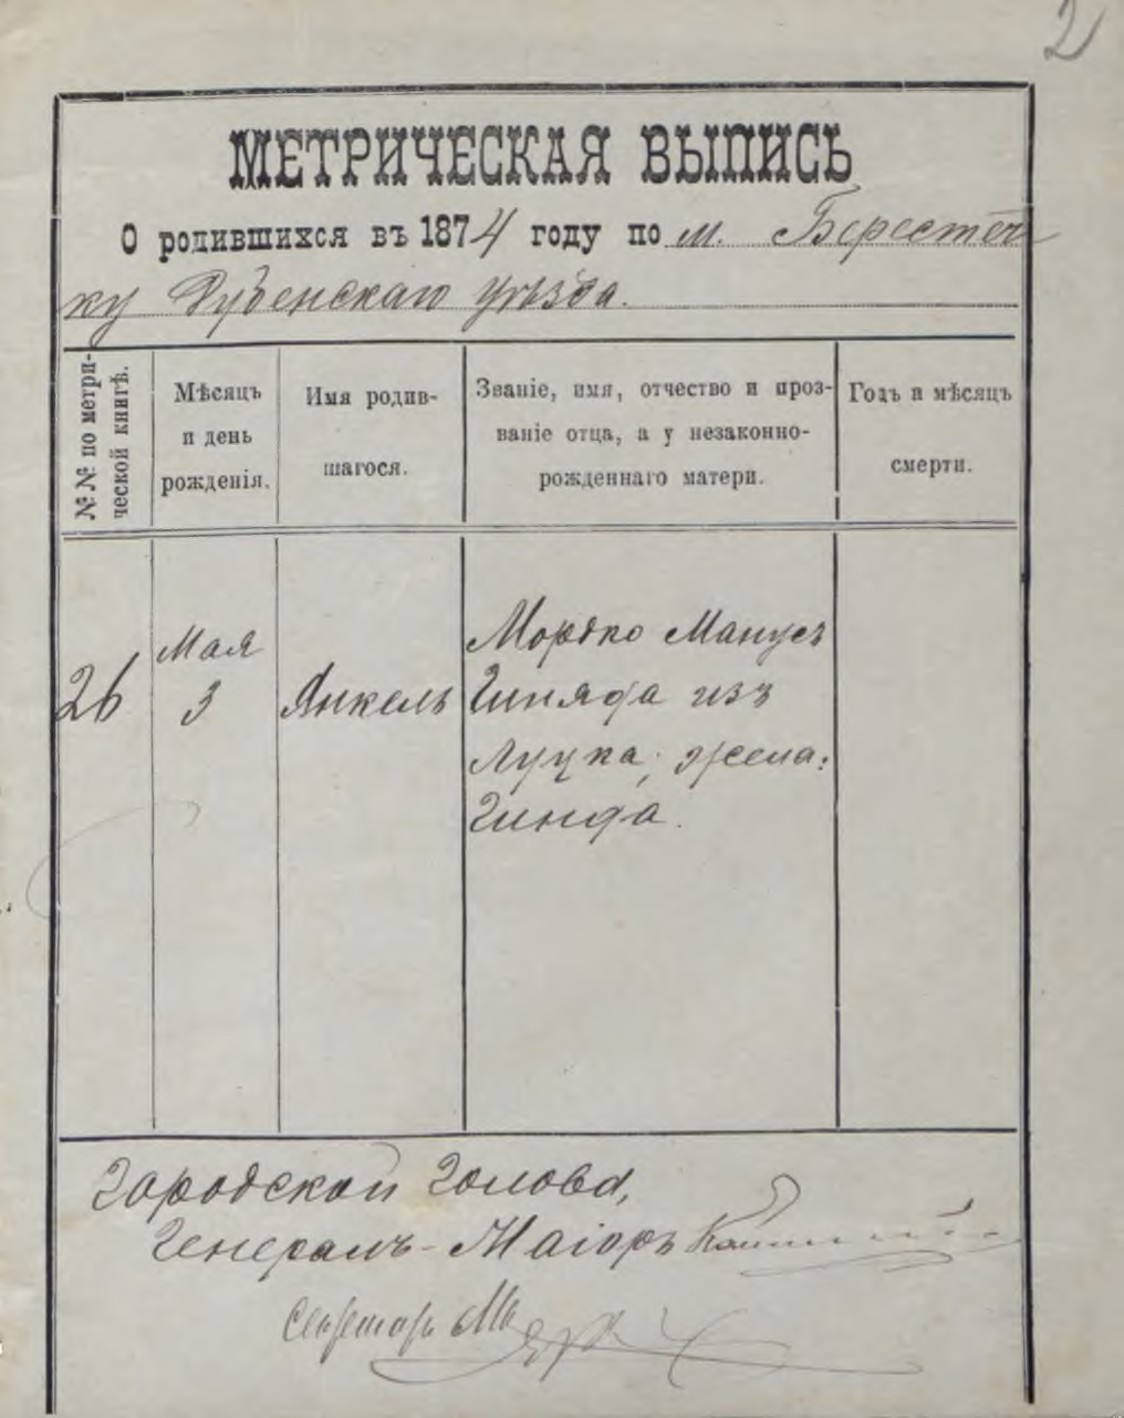 2
МЕТРИЧЕСКАЯ ВЫПИСЬ
О родившихся въ 1874 году по м. Берестеч
ку Дубенскаго уѣзда.
№№ по метри-
ческой книгѣ.
Мѣсяцъ
и день
рожденія.
Имя родив-
шагося.
Званіе, имя, отчество и проз-
ваніе отца, а у незаконно-
рожденнаго матери.
Годъ и мѣсяцъ
смерти.
26
Мая
3
Янкель
Мордко Манусъ
Гиняда изъ
Луцка; жена:
Гинда.
Городской Голова,
Генералъ-Маіоръ
Секретарь